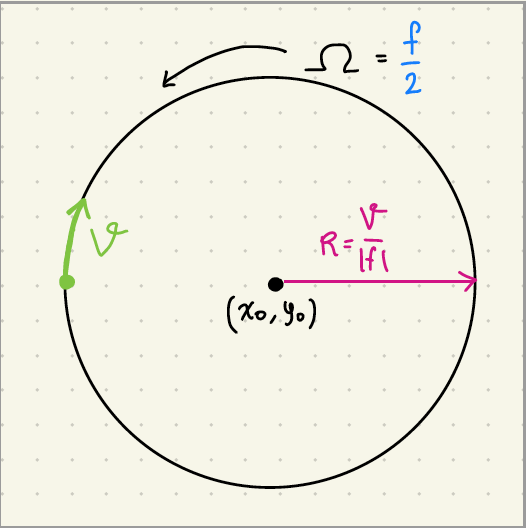 Ω = f/2
v
R = v/|f|
(x₀, y₀)